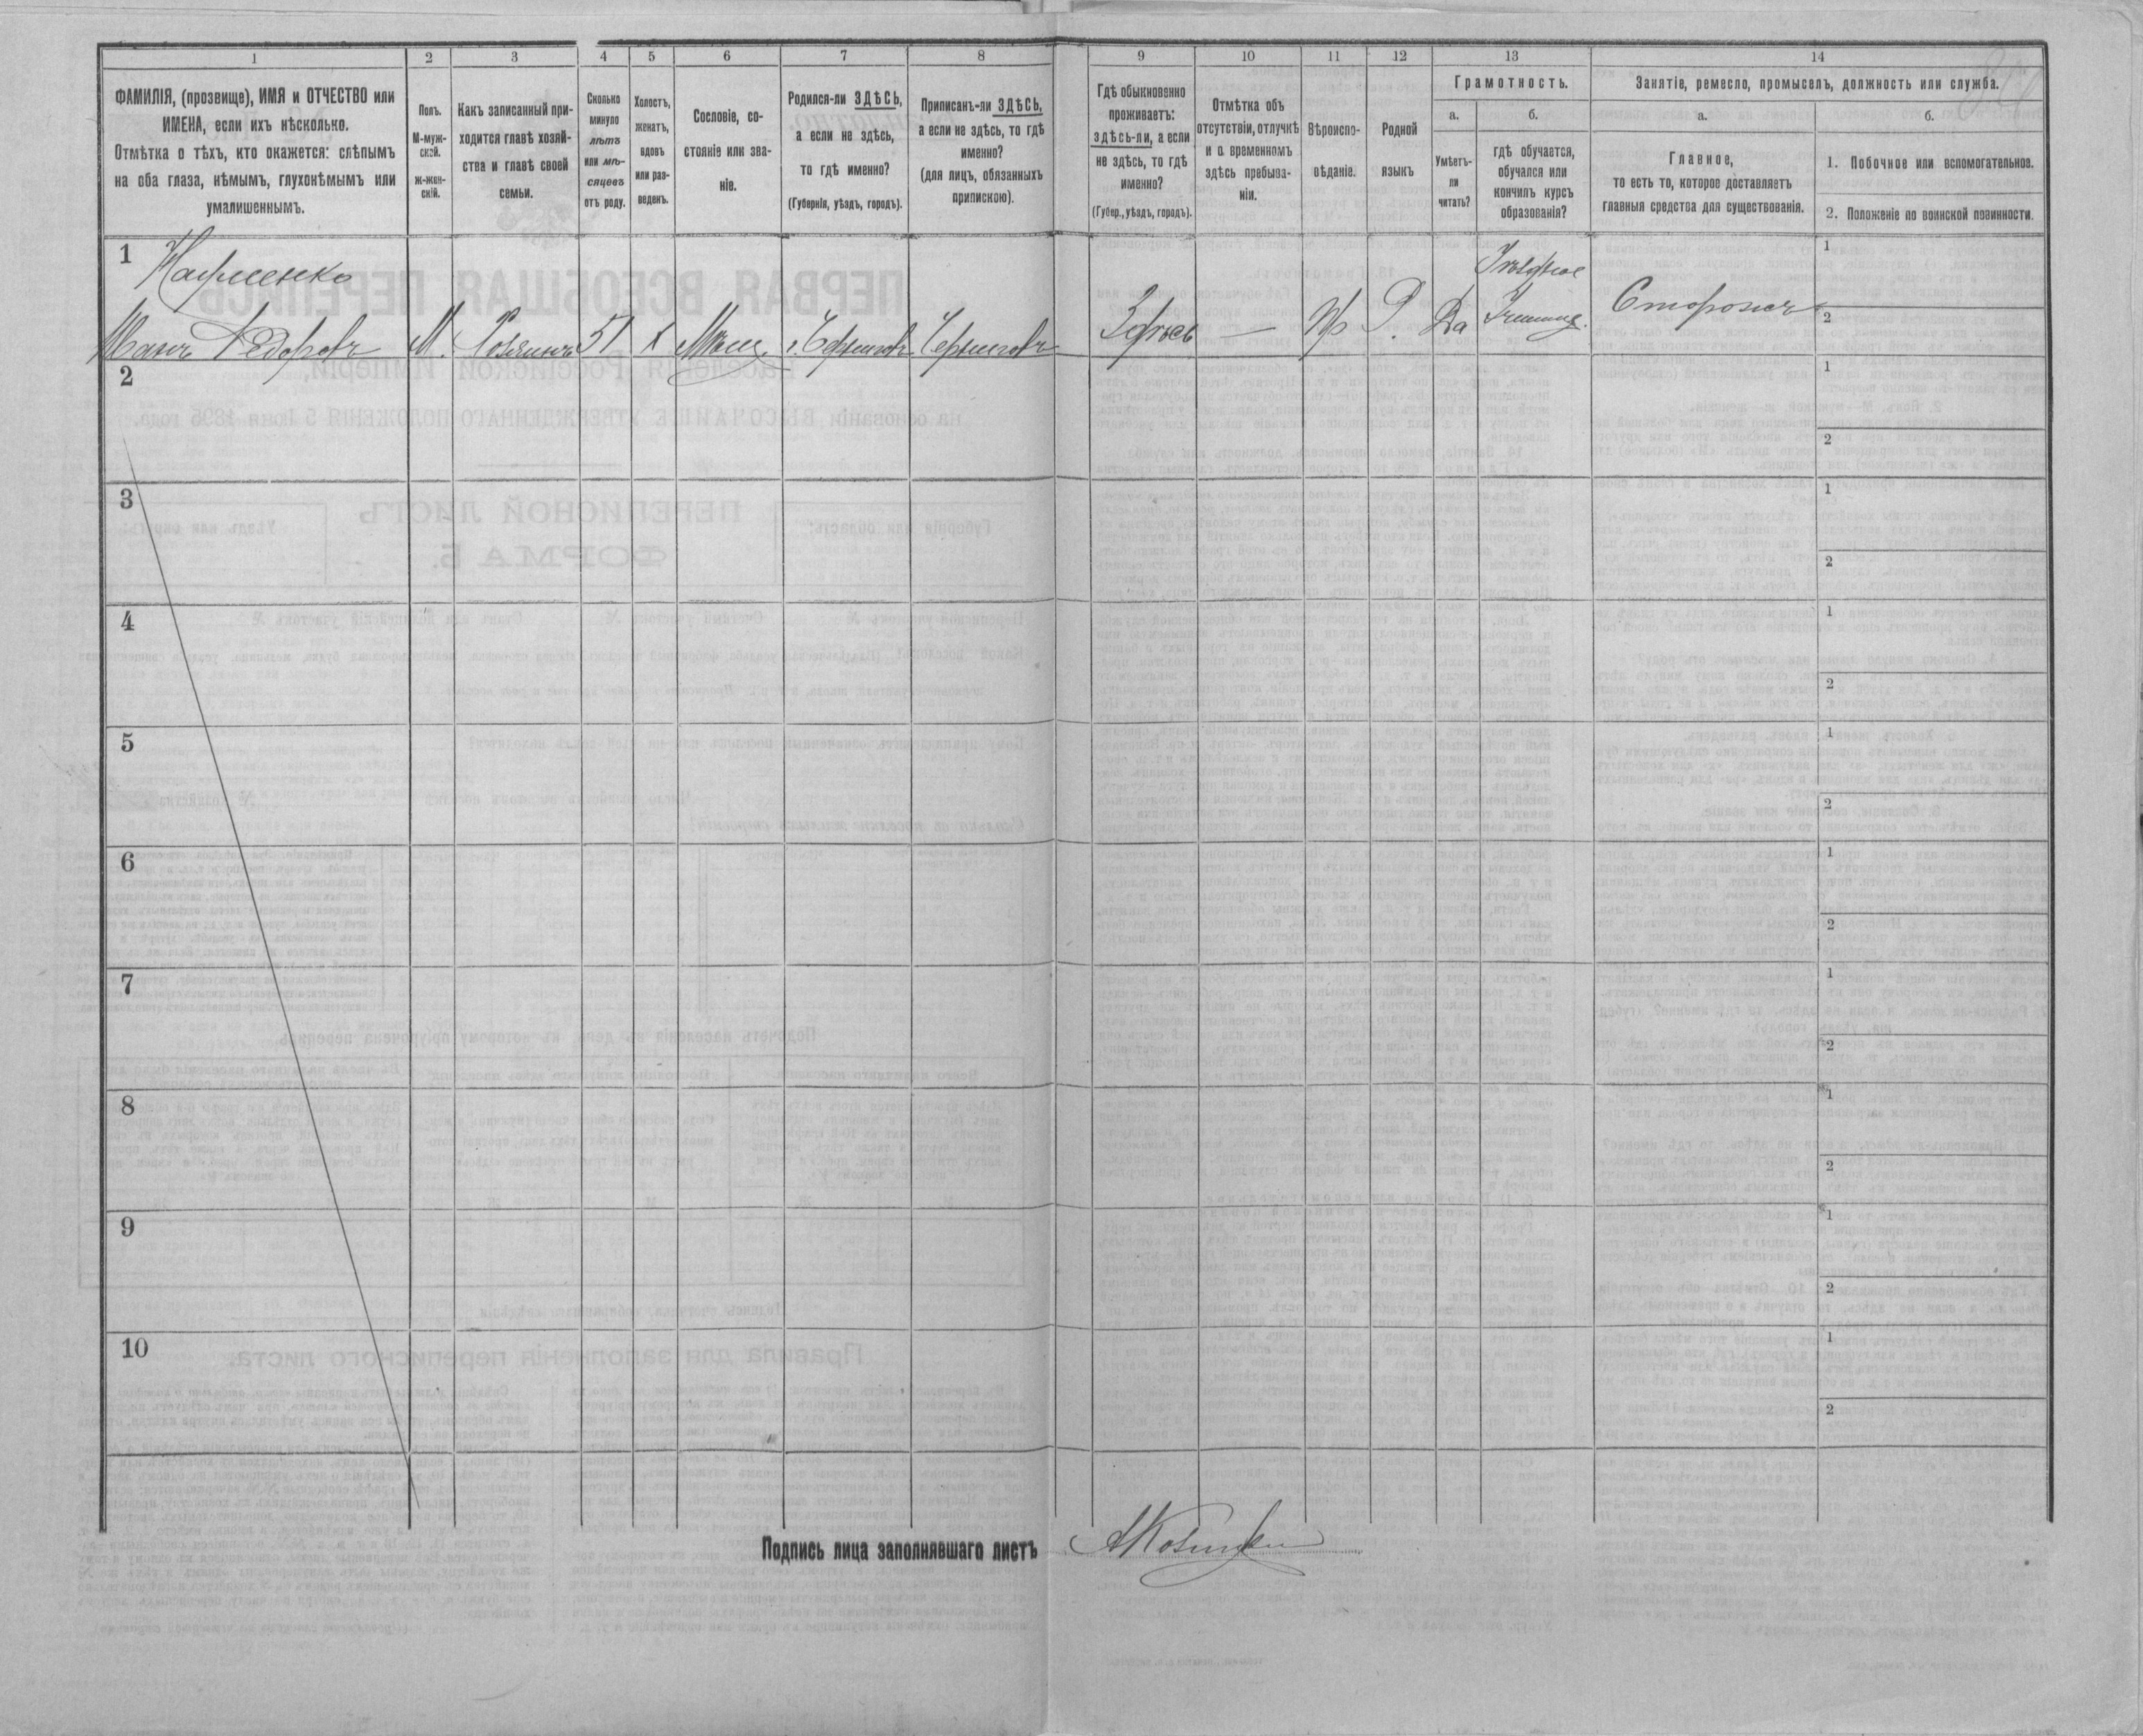 1
2
3
4
5
6
7
8
9
10
11
12
13
14
ФАМИЛІЯ, (прозвище), ИМЯ и ОТЧЕСТВО или
ИМЕНА, если ихъ нѣсколько.
Отмѣтка о тѣхъ, кто окажется: слѣпымъ
на оба глаза, нѣмымъ, глухонѣмымъ или
умалишеннымъ.
Полъ.
М-муж-
ской.
ж-жен-
скій.
Какъ записанный при-
ходится главѣ хозяй-
ства и главѣ своей
семьи.
Сколько
минуло
лѣтъ
или мѣ-
сяцевъ
отъ роду.
Холостъ,
женатъ,
вдовъ
или раз-
веденъ.
Сословіе, со-
стояніе или зва-
ніе.
Родился-ли ЗДѢСЬ,
а если не здѣсь,
то гдѣ именно?
(Губернія, уѣздъ, городъ).
Приписанъ-ли ЗДѢСЬ,
а если не здѣсь, то гдѣ
именно?
(для лицъ, обязанныхъ
припискою).
Гдѣ обыкновенно
проживаетъ:
здѣсь-ли, а если
не здѣсь, то гдѣ
именно?
(Губер., уѣздъ, городъ).
Отмѣтка объ
отсутствіи, отлучкѣ
и о временномъ
здѣсь пребыва-
ніи.
Вѣроиспо-
вѣданіе.
Родной
языкъ
Грамотность.
а.
Умѣетъ-
ли
читать?
б.
гдѣ обучается,
обучался или
кончилъ курсъ
образованія?
Занятіе, ремесло, промыселъ, должность или служба.
а.
Главное,
то есть то, которое доставляетъ
главныя средства для существованія.
б.
1. Побочное или вспомогательное.
2. Положеніе по воинской повинности.
1
Иванъ Федоровъ М. 51 Х Мѣщ. г. Черниговъ Черниговъ Здѣсь — Пр Р. Да Сторожъ
1
2
2
1
2
3
1
2
4
1
2
5
1
2
6
1
2
7
1
2
8
1
2
9
1
2
10
1
2
Подпись лица заполнявшаго листъ